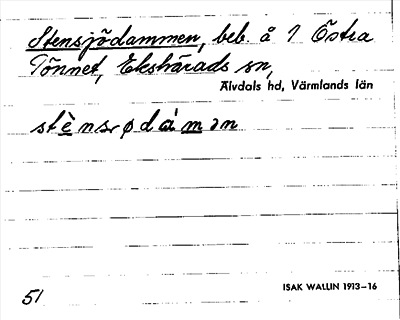 Stensjödammen, beb. å 1 Östra
Tönnet, Ekshärads sn,
Älvdals hd, Värmlands län
stènsrødàmən
51
ISAK WALLIN 1913–16